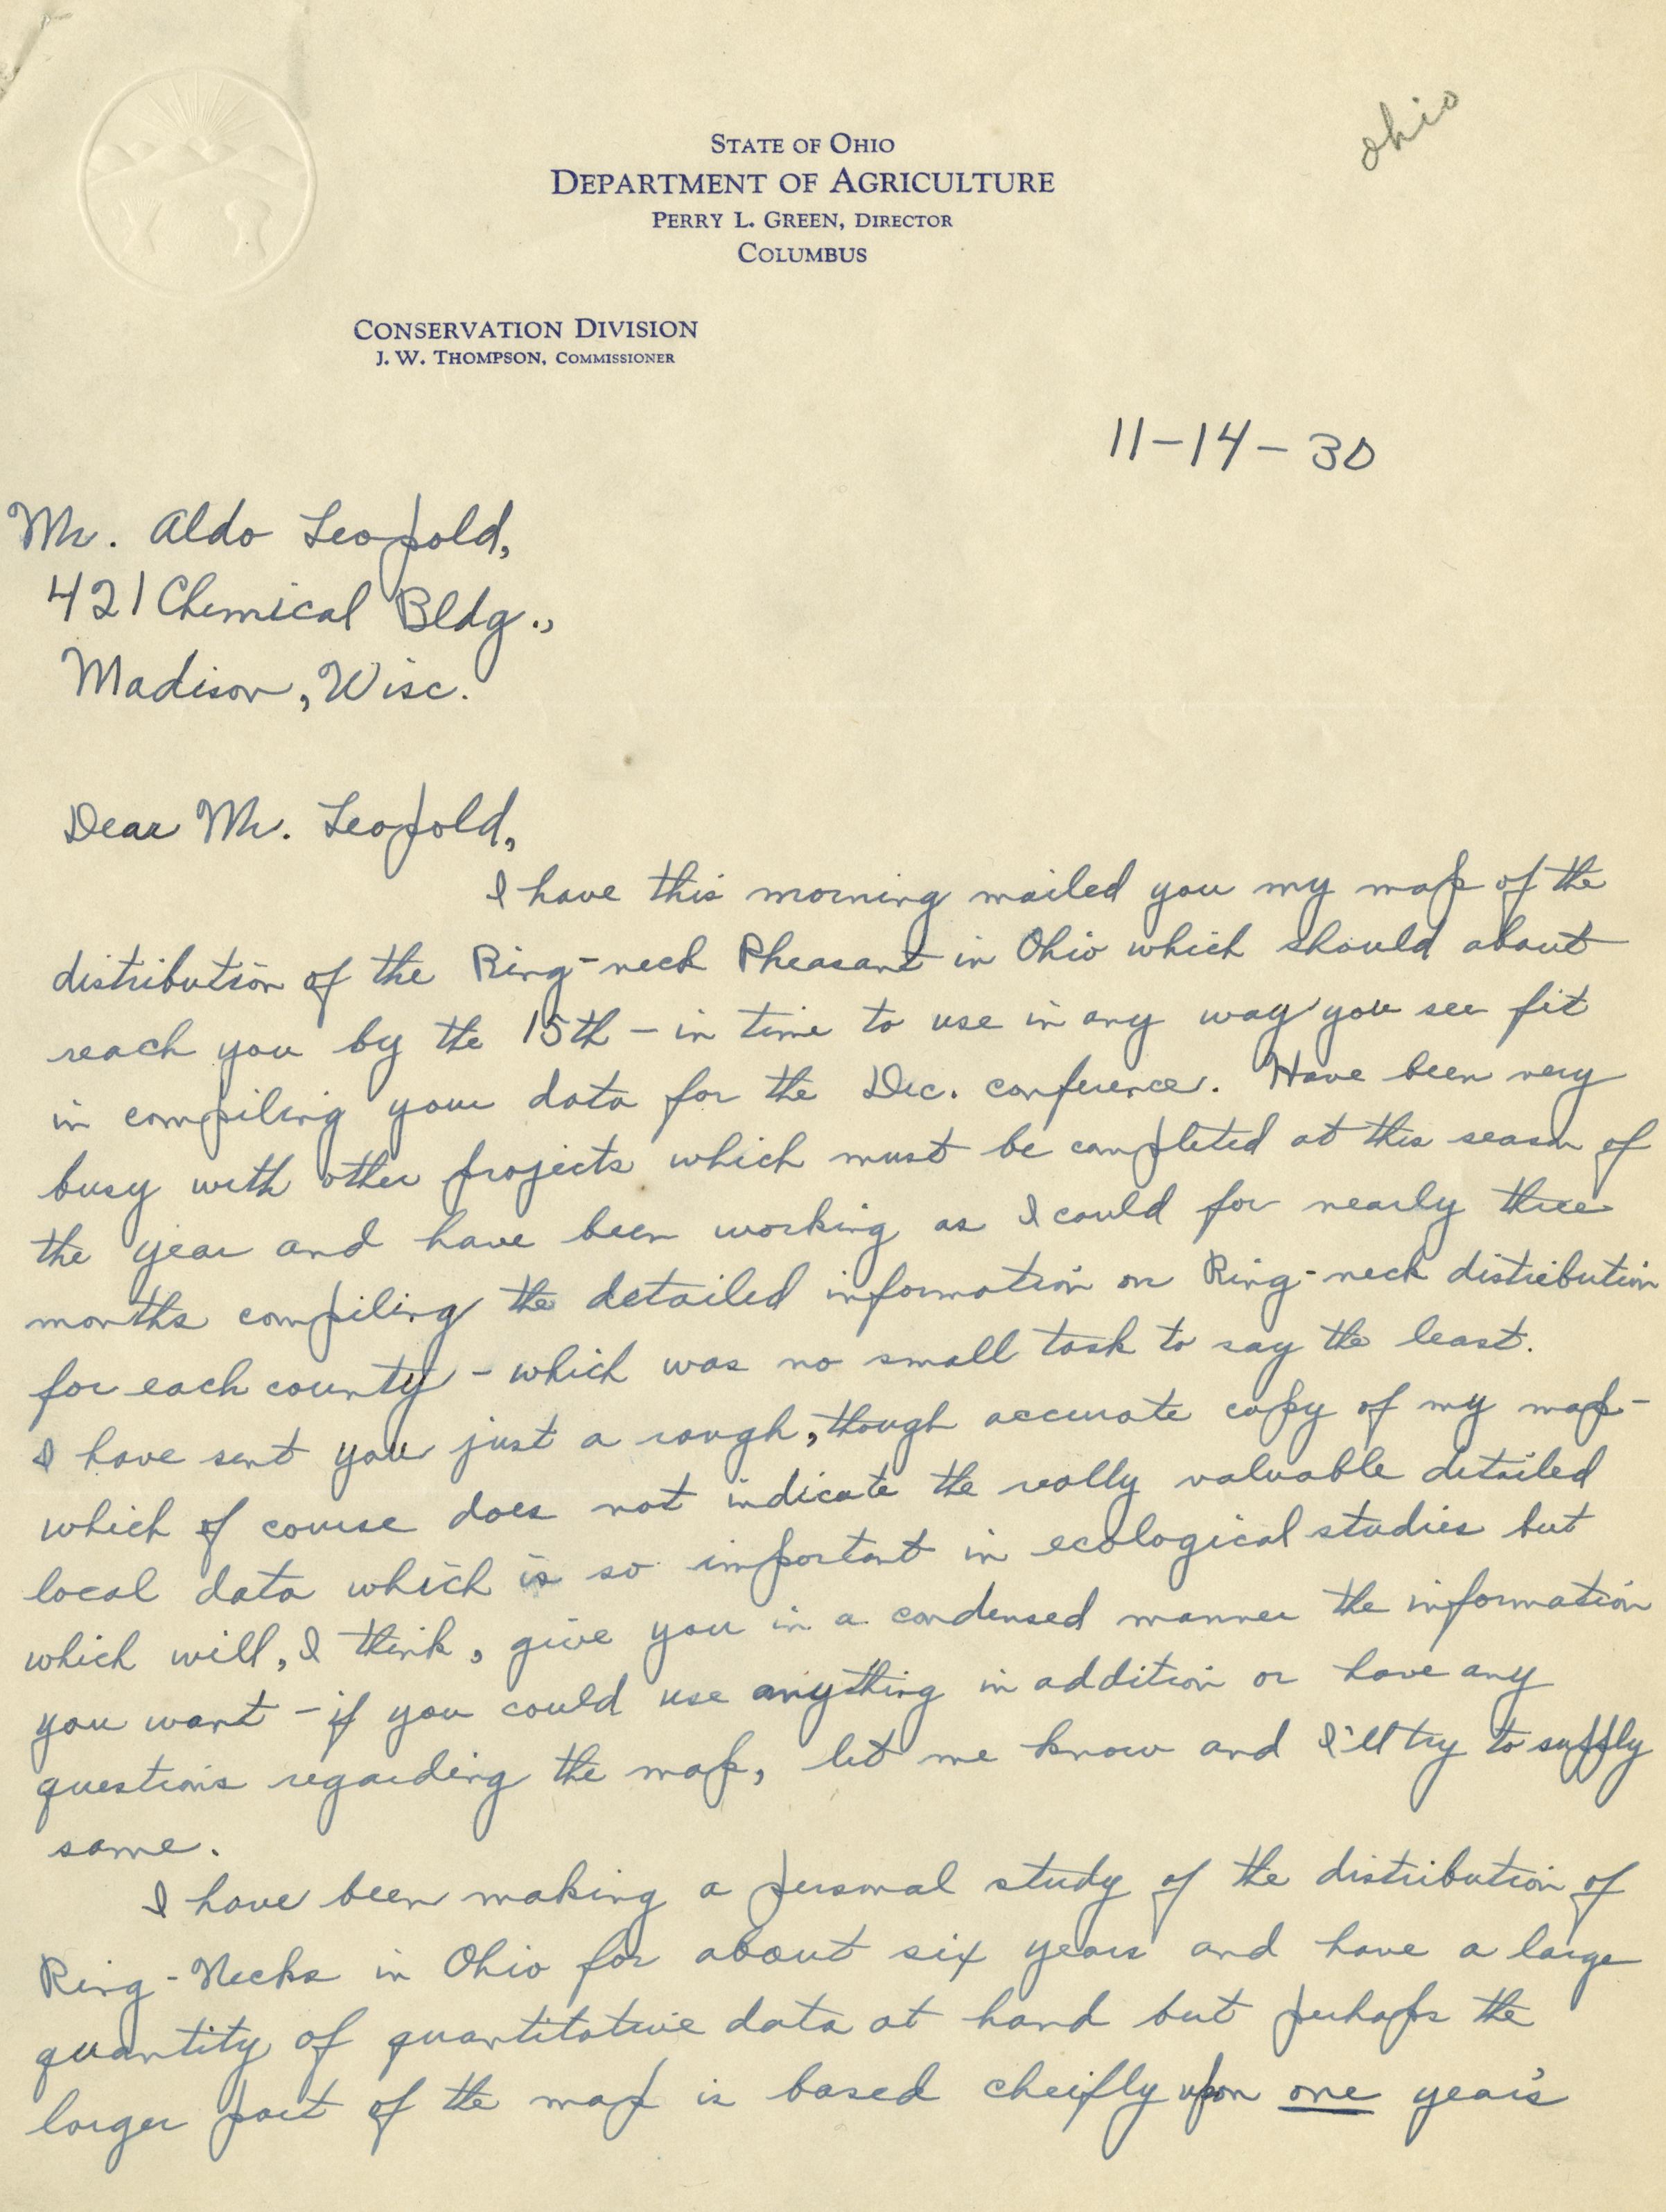 ohio
STATE OF OHIO
DEPARTMENT OF AGRICULTURE
PERRY L. GREEN, DIRECTOR
COLUMBUS
CONSERVATION DIVISION
J. W. THOMPSON, COMMISSIONER
11-14-30
Mr. Aldo Leopold,
421 Chemical Bldg.,
Madison, Wisc.
Dear Mr. Leopold,
I have this morning mailed you my map of the
distribution of the Ring-neck Pheasant in Ohio which should about
reach you by the 15th - in time to use in any way you see fit
in compiling your data for the Dec. conference. Have been very
busy with other projects which must be completed at this season of
the year and have been working as I could for nearly three
months compiling the detailed information on Ring-neck distribution
for each county - which was no small task to say the least.
I have sent you just a rough, though accurate copy of my map -
which of course does not indicate the really valuable detailed
local data which is so important in ecological studies but
which will, I think, give you in a condensed manner the information
you want - if you could use anything in addition or have any
questions regarding the map, let me know and I'll try to supply
same.
I have been making a personal study of the distribution of
Ring-Necks in Ohio for about six years and have a large
quantity of quantitative data at hand but perhaps the
larger part of the map is based cheifly upon one year's